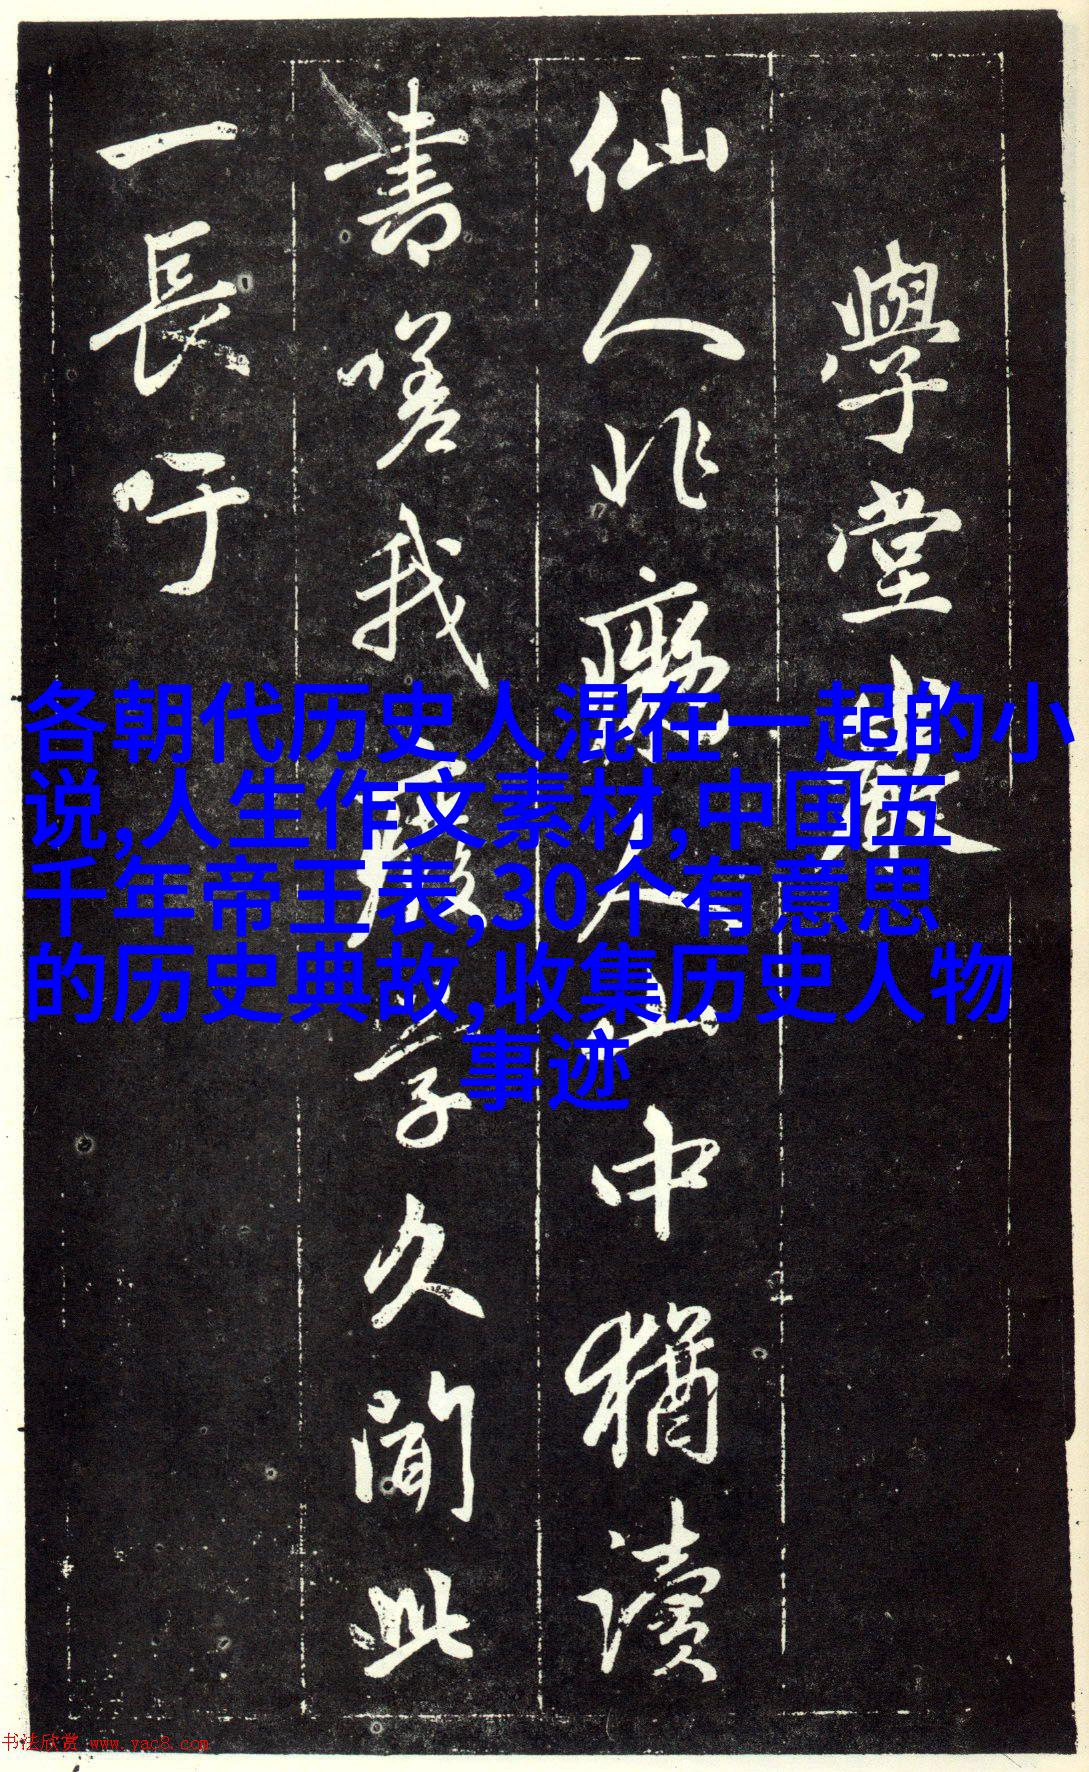 學堂巖
仙人非癡人山中猶讀
書嗟我廢學久聞此
一長吁
各朝代历史人混在一起的小
说,人生作文素材,中国五
千年帝王表,30个有意思
的历史典故,收集历史人物
事迹
书法欣赏 www.yac8.com